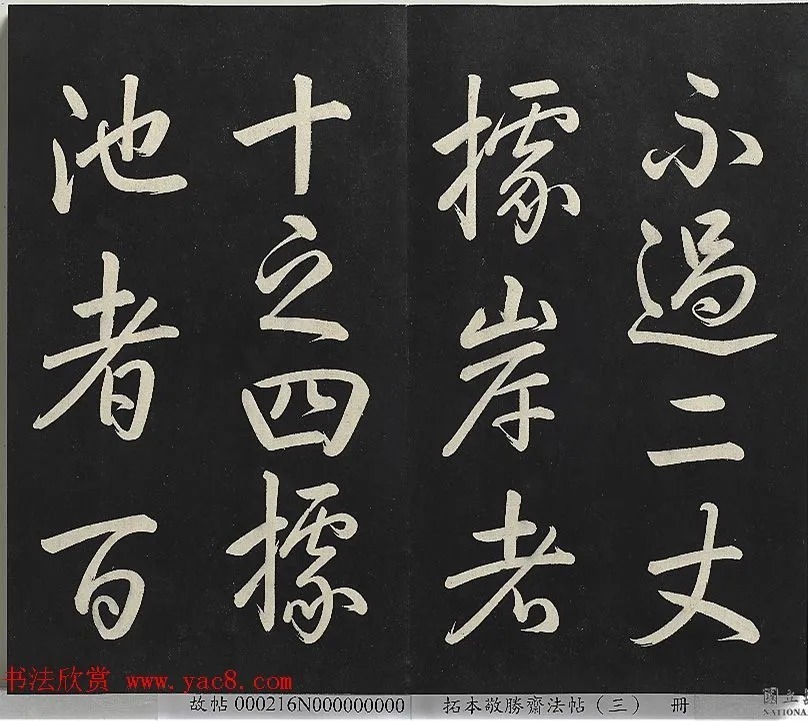 不過二丈
據岸者
十之四據
池者百
书法欣赏 www.yac8.com
故帖 000216N000000000
拓本敬勝齋法帖（三） 册
國立
NATIONA